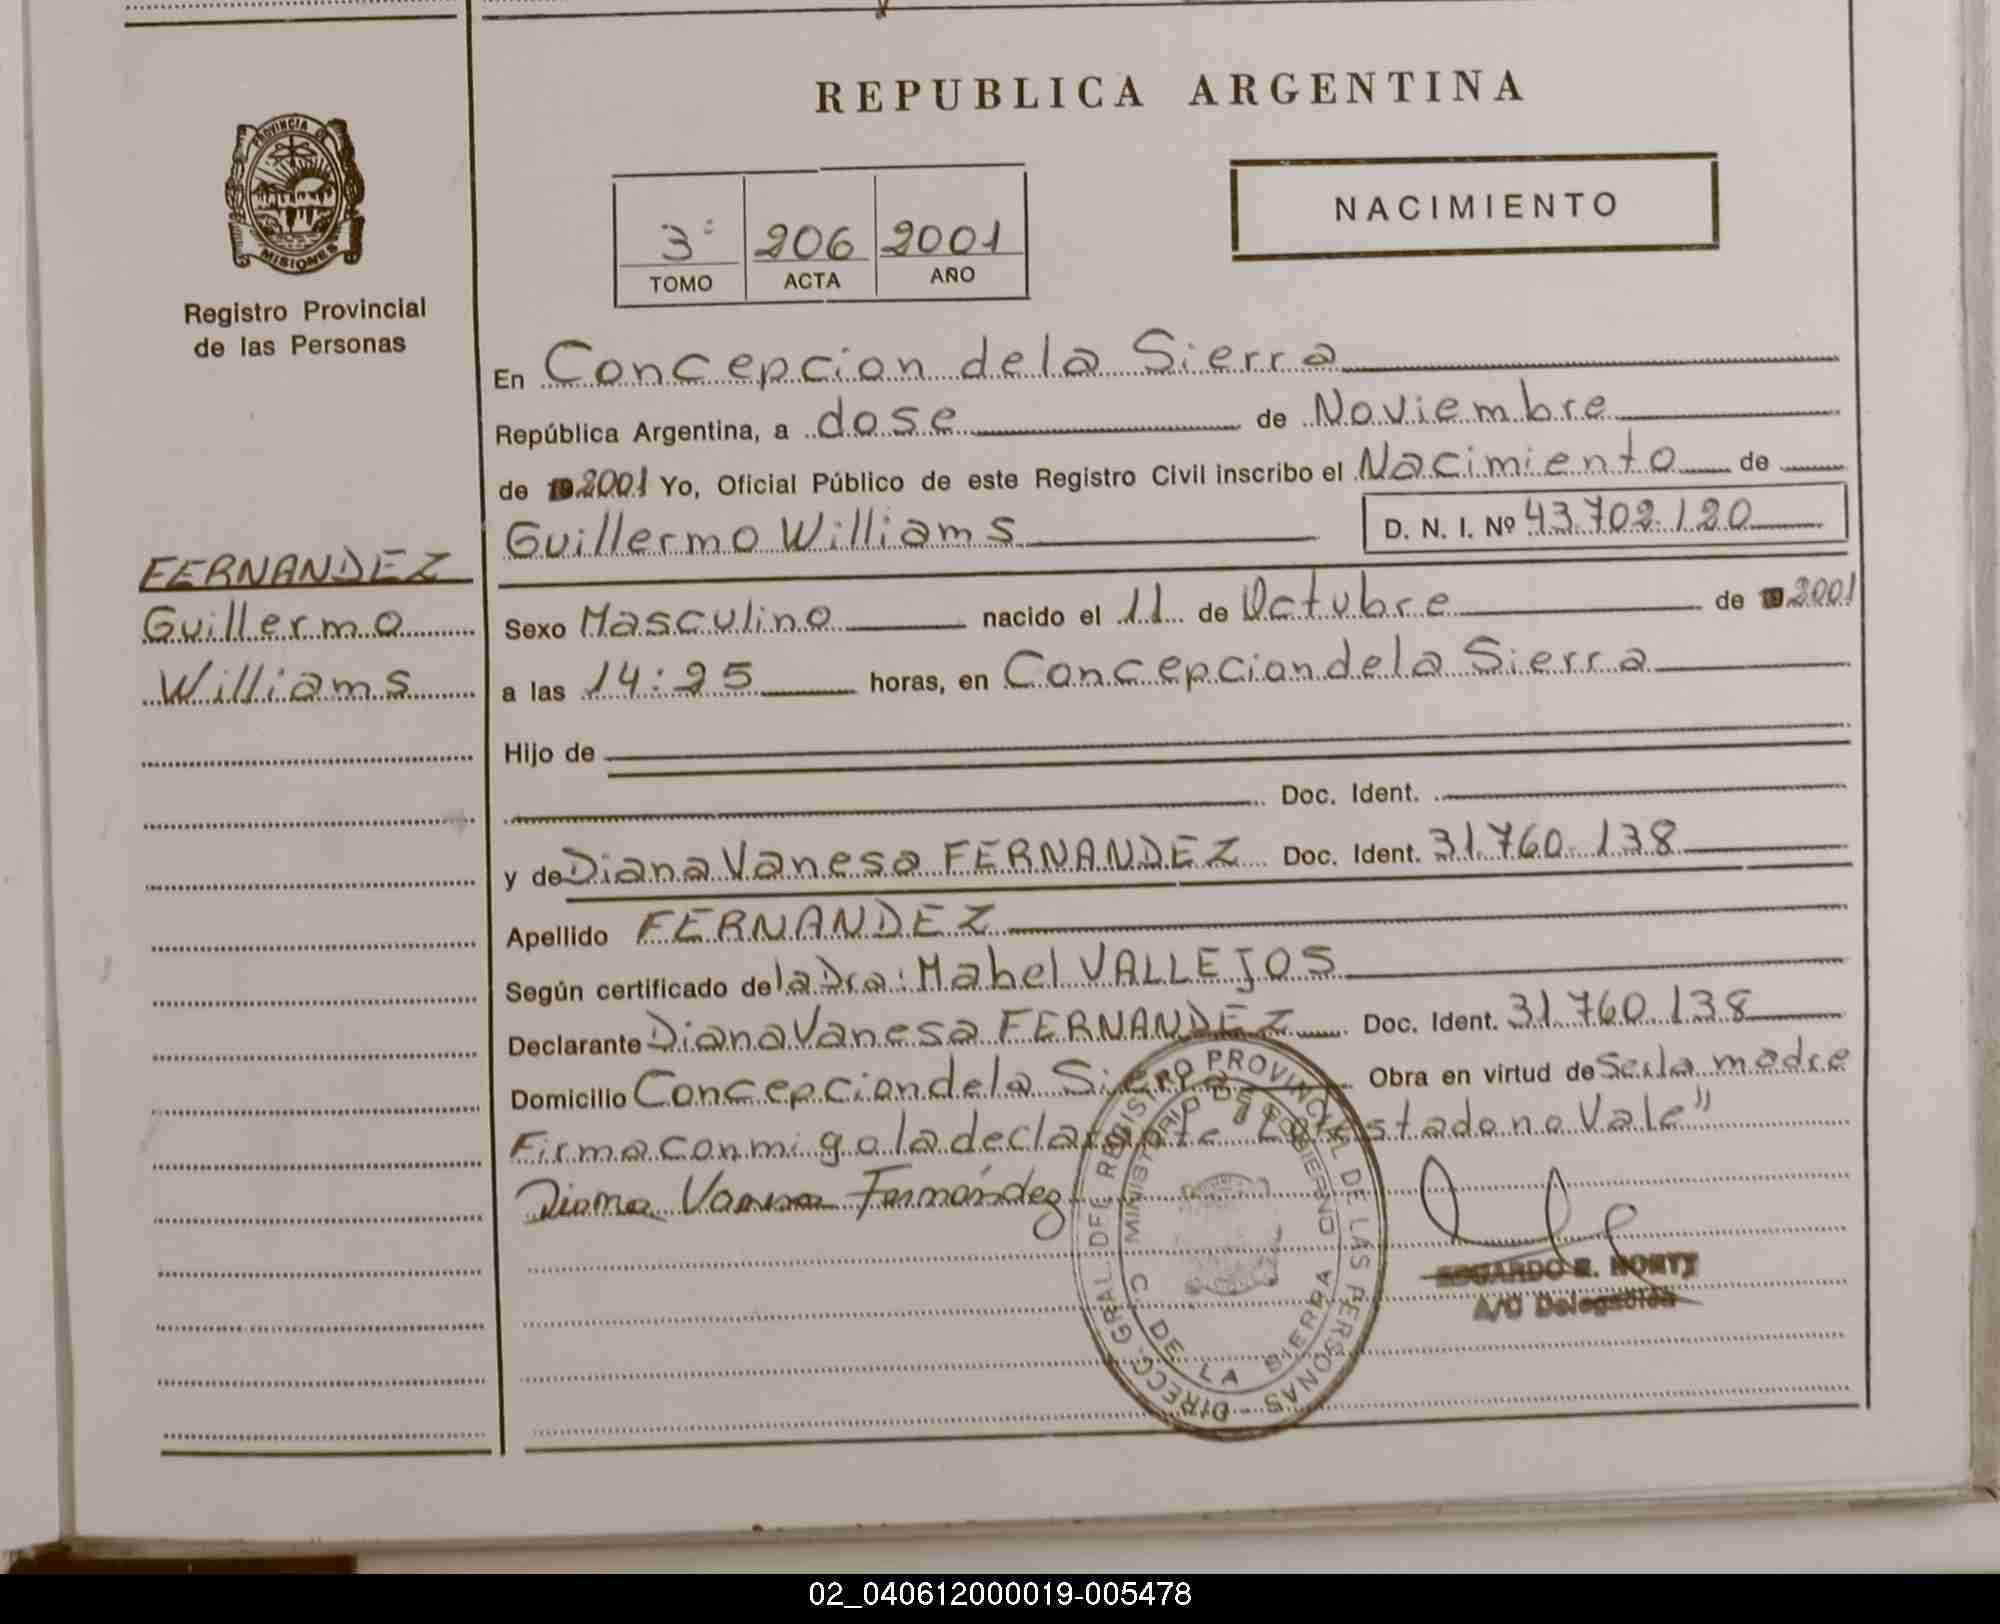 REPUBLICA ARGENTINA
PROVINCIA DE
MISIONES
Registro Provincial
de las Personas
3º 206 2001
TOMO ACTA AÑO
NACIMIENTO
En Concepcion de la Sierra
República Argentina, a dose de Noviembre
de 2001 Yo, Oficial Público de este Registro Civil inscribo el Nacimiento de
Guillermo Williams D. N. I. Nº 43.702.120
FERNANDEZ
Guillermo
Williams
Sexo Masculino nacido el 11 de Octubre de 2001
a las 14:25 horas, en Concepcion de la Sierra
Hijo de
Doc. Ident.
y de Diana Vanesa FERNANDEZ Doc. Ident. 31.760.138
Apellido FERNANDEZ
Según certificado de la Dra: Mabel VALLEJOS
Declarante Diana Vanesa FERNANDEZ Doc. Ident. 31.760.138
Domicilio Concepcion de la Sierra Obra en virtud de ser la madre
Firma conmigo la declarante "Lo testado no Vale"
Diana Vanesa Fernández
DIRECC. GRAL. DEL REGISTRO PROVINCIAL DE LAS PERSONAS
MINISTERIO DE GOBIERNO
C. DE LA SIERRA
EDGARDO R. NORTY
A/C Delegación
02_040612000019-005478